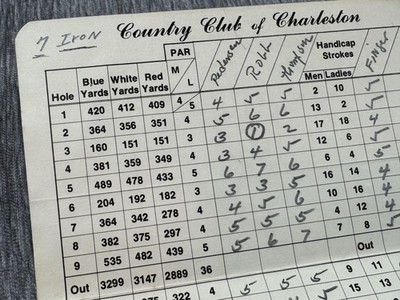 7 IRON
Country Club of Charleston
Hole Blue Yards White Yards Red Yards PAR M L Pedersen ROLL Thompson Handicap Strokes Men Ladies Finger
1 420 412 409 4 5 4 5 5 2 10 5
2 364 356 351 4 5 6 6 13 2 5
3 160 151 151 3 3 1 2 17 18 4
4 381 359 349 4 3 4 5 12 6 5
5 489 478 433 5 6 7 6 6 4 5
6 204 192 182 3 3 3 5 16 14 4
7 364 342 278 4 4 5 6 10 16 4
8 382 375 297 4 5 5 5 4 12 4
9 535 482 439 5 5 6 7 7 8 5
Out 3299 3147 2889 36 Out
322 4 5 5 5 9 11
15